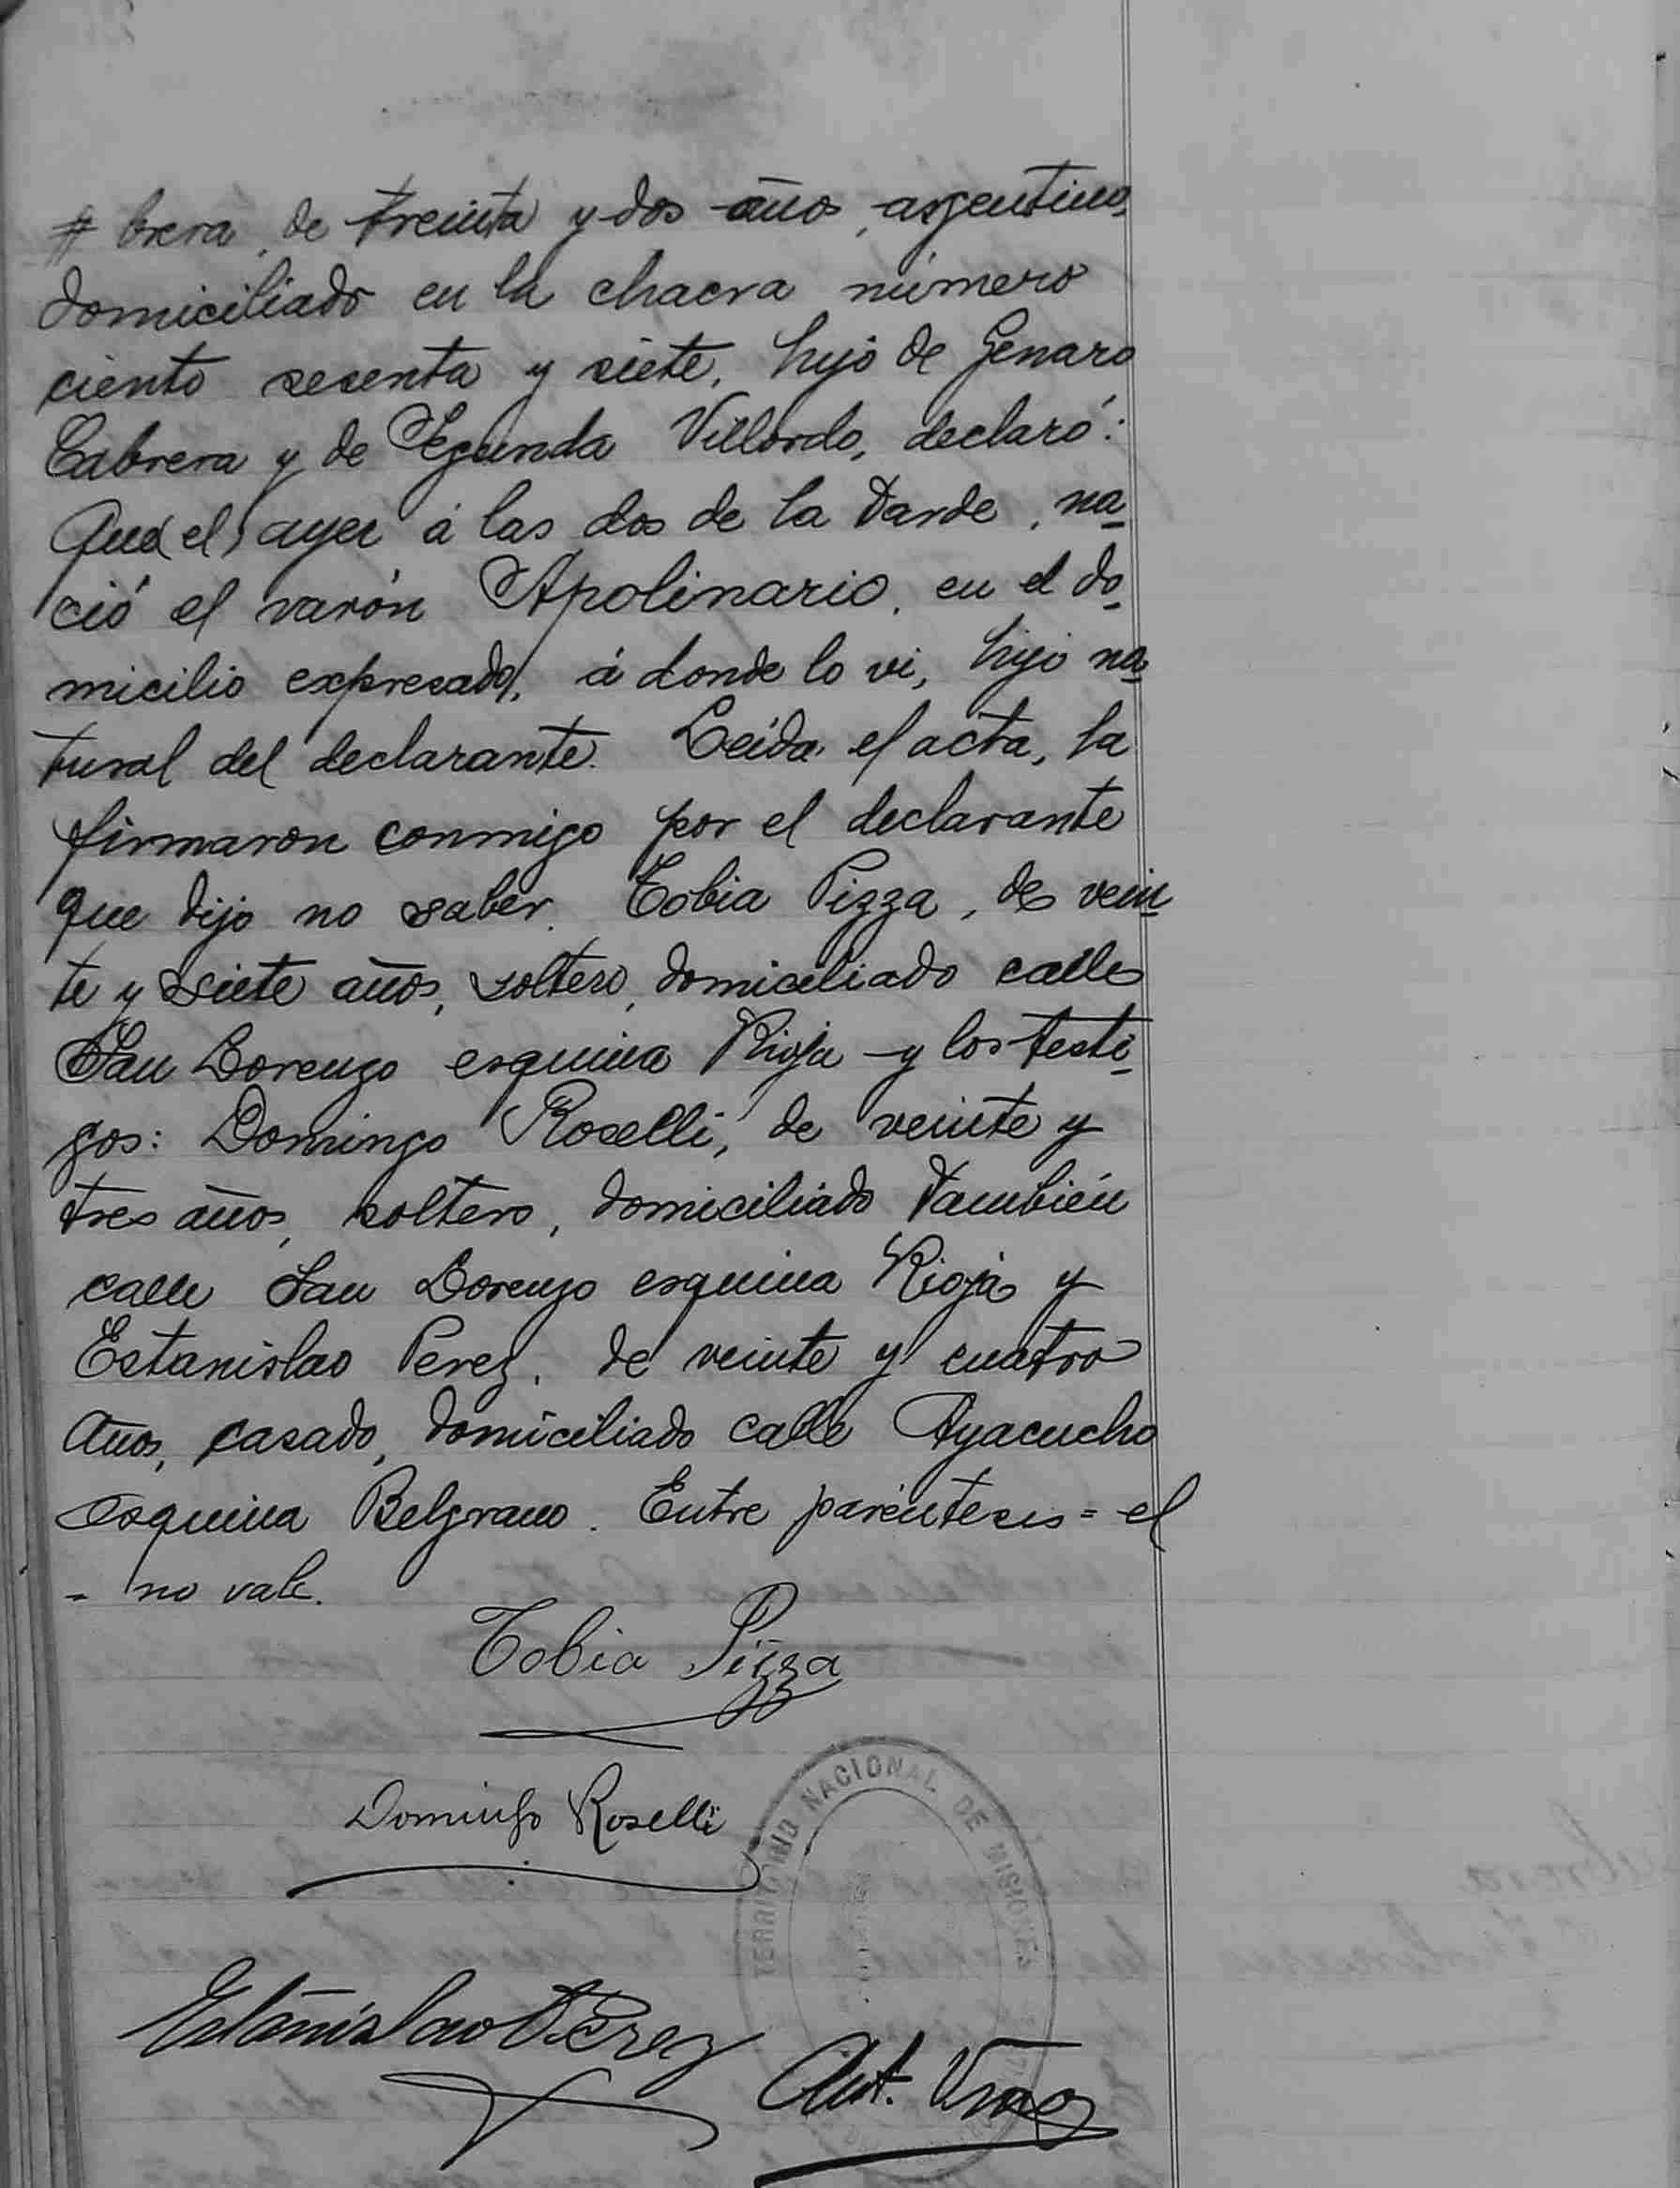 # brera, de treinta y dos años, argentino,
domiciliado en la chacra número
ciento sesenta y siete, hijo de Genaro
Cabrera y de Segunda Villordo, declaró:
Que (el) ayer á las dos de la tarde, na-
ció el varón Apolinario, en el do-
micilio expresado, á donde lo vi, hijo na-
tural del declarante. Leida el acta, la
firmaron conmigo por el declarante
que dijo no saber. Tobia Pizza, de vein-
te y siete años, soltero, domiciliado calle
San Lorenzo esquina Rioja y los testi-
gos: Domingo Roselli, de veinte y
tres años, soltero, domiciliado también
calle San Lorenzo esquina Rioja y
Estanislao Perez, de veinte y cuatro
años, casado, domiciliado calle Ayacucho
esquina Belgrano. Entre paréntesis = el
= no vale.
Tobia Pizza
Domingo Roselli
TERRITORIO NACIONAL DE MISIONES
Estanislao Perez
Ant.